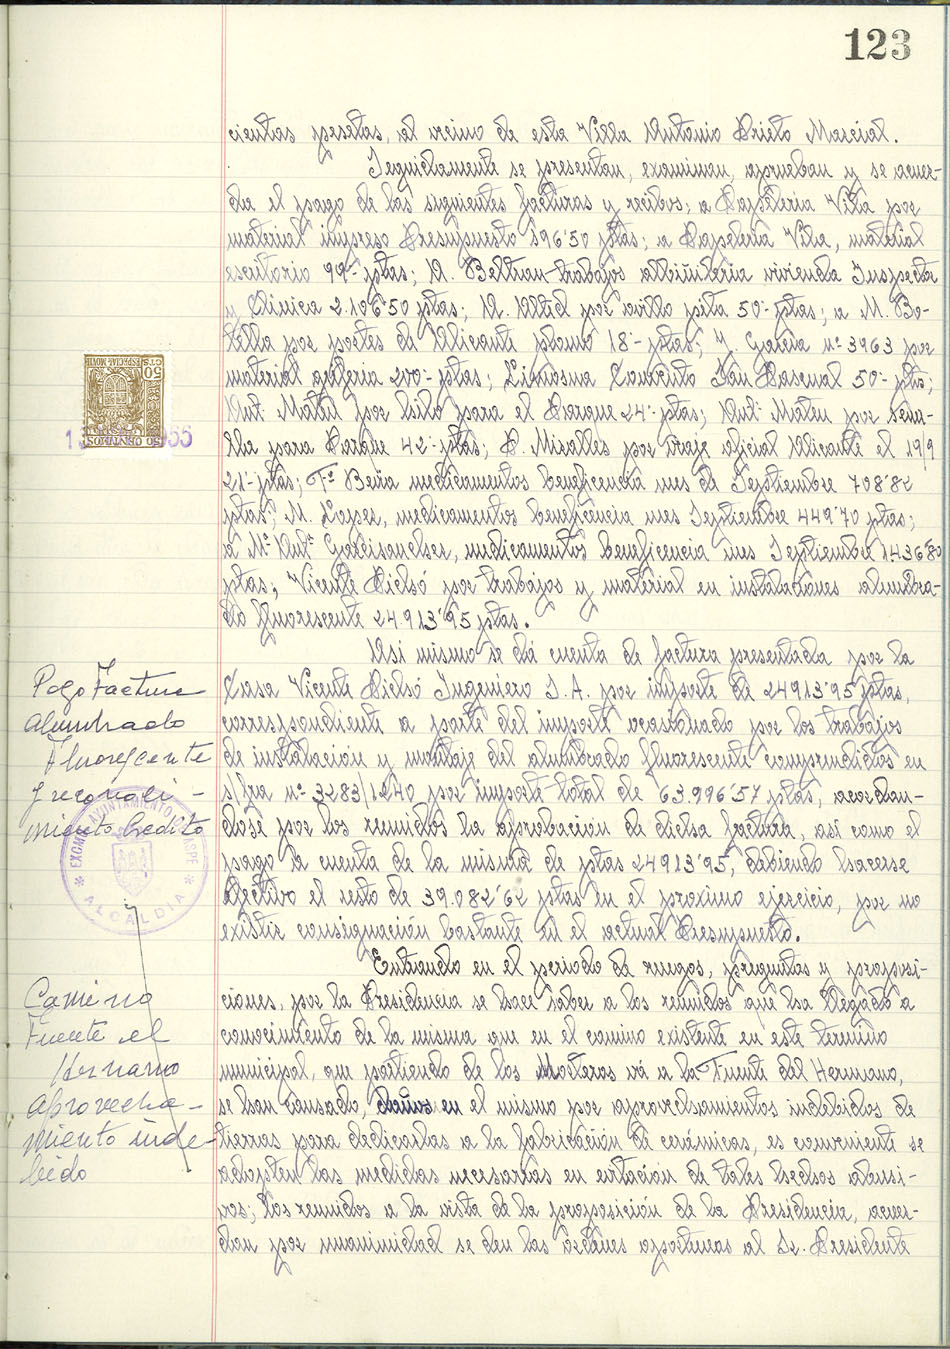 123
cientas pesetas, al vecino de esta Villa Antonio Prieto Marcial.
Seguidamente se presentan, examinan, aprueban y se acuer-
da el pago de las siguientes facturas y recibos; a Papeleria Vila por
material impreso Presupuesto 196'50 ptas; a Papeleria Vila, material
escritorio 99'- ptas; A. Beltran trabajos albiñileria vivienda Inspector
y Clinica 2.106'50 ptas; A. por ovillo pita 50'- ptas; a M. Bo-
tella por portes de Alicante plomo 18'- ptas; J. Garcia nº 3963 por
material 200'- ptas; Limosna Convento San Pascual 50'- ptas;
Ant. Mateu por hilo para el Parque 24'- ptas; Antº Mateu por semi-
lla para Parque 42'- ptas; P. Miralles por viaje oficial Alicante el 19/9
21'- ptas; Fº medicamentos beneficencia mes de Septiembre 708'82
ptas; M. Lopez, medicamentos beneficencia mes Septiembre 449'70 ptas;
a Mª Antª medicamentos beneficencia mes Septiembre 1.436'80
ptas; Vicente Pielsó por trabajos y material en instalaciones alumbra-
do fluorescente 24.913'95 ptas.
Asi mismo se dá cuenta de factura presentada por la
Casa Vicente Pielsó Ingeniero S.A. por importe de 24913'95 ptas,
correspondiente a parte del importe ocasionado por los trabajos
de instalación y montaje del alumbrado fluorescente comprendidos en
s/fra nº 3283/1240 por importe total de 63.996'57 ptas, acordan-
dose por los reunidos la aprobacion de dicha factura, así como el
pago a cuenta de la misma de ptas 24913'95, debiendo hacerse
efectivo el resto de 39.082'62 ptas en el proximo ejercicio, por no
existir consignación bastante en el actual Presupuesto.
Entrando en el periodo de ruegos, preguntas y proposi-
ciones, por la Presidencia se hace saber a los reunidos que ha llegado a
conocimiento de la misma que en el camino existente en este termino
municipal, que partiendo de los Mosteros vá a la Fuente del Hermano,
se han causado, daños en el mismo por aprovechamientos indebidos de
tierras para dedicarlas a la fabricación de cerámicas, es conveniente se
adopten las medidas necesarias en evitación de tales hechos abusi-
vos; los reunidos a la vista de la proposición de la Presidencia, acuer-
dan por unanimidad se den las ordenes oportunas al Sr. Presidente
50 CTS.
ESPECIAL MOVIL
50 CENTIMOS
Pago Factura
alumbrado
Fluorescente
y reconoci-
miento Credito
EXCMO. AYUNTAMIENTO DE ASPE
* ALCALDIA *
Camino
Fuente el
Hermano
aprovecha-
miento inde-
bido